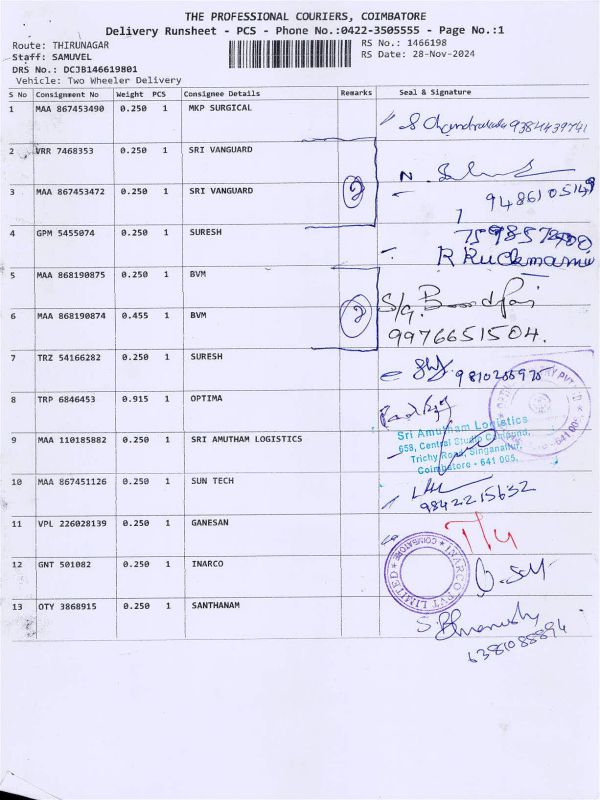 THE PROFESSIONAL COURIERS, COIMBATORE
Delivery Runsheet - PCS - Phone No.:0422-3505555 - Page No.:1
Route: THIRUNAGAR
RS No.: 1466198
Staff: SAMUVEL
RS Date: 28-Nov-2024
DRS No.: DCJB146619801
Vehicle: Two Wheeler Delivery
S No Consignment No Weight PCS Consignee Details Remarks Seal & Signature
1 MAA 867453490 0.250 1 MKP SURGICAL
S Chandrakala 9384439741
2 VRR 7468353 0.250 1 SRI VANGUARD
N.
3 MAA 867453472 0.250 1 SRI VANGUARD 2
9486105149
4 GPM 5455074 0.250 1 SURESH
R Ruckmani
5 MAA 868190875 0.250 1 BVM
6 MAA 868190874 0.455 1 BVM 2
9976651504.
7 TRZ 54166282 0.250 1 SURESH
8 TRP 6846453 0.915 1 OPTIMA
Sri Amutham Logistics
9 MAA 110185882 0.250 1 SRI AMUTHAM LOGISTICS
658, Central Studio Compound,
Trichy Road, Singanallur,
Coimbatore - 641 005.
10 MAA 867451126 0.250 1 SUN TECH
9842215632
11 VPL 226028139 0.250 1 GANESAN
12 GNT 501082 0.250 1 INARCO
INARCO PVT LIMITED * COIMBATORE *
13 OTY 3868915 0.250 1 SANTHANAM
6381088894